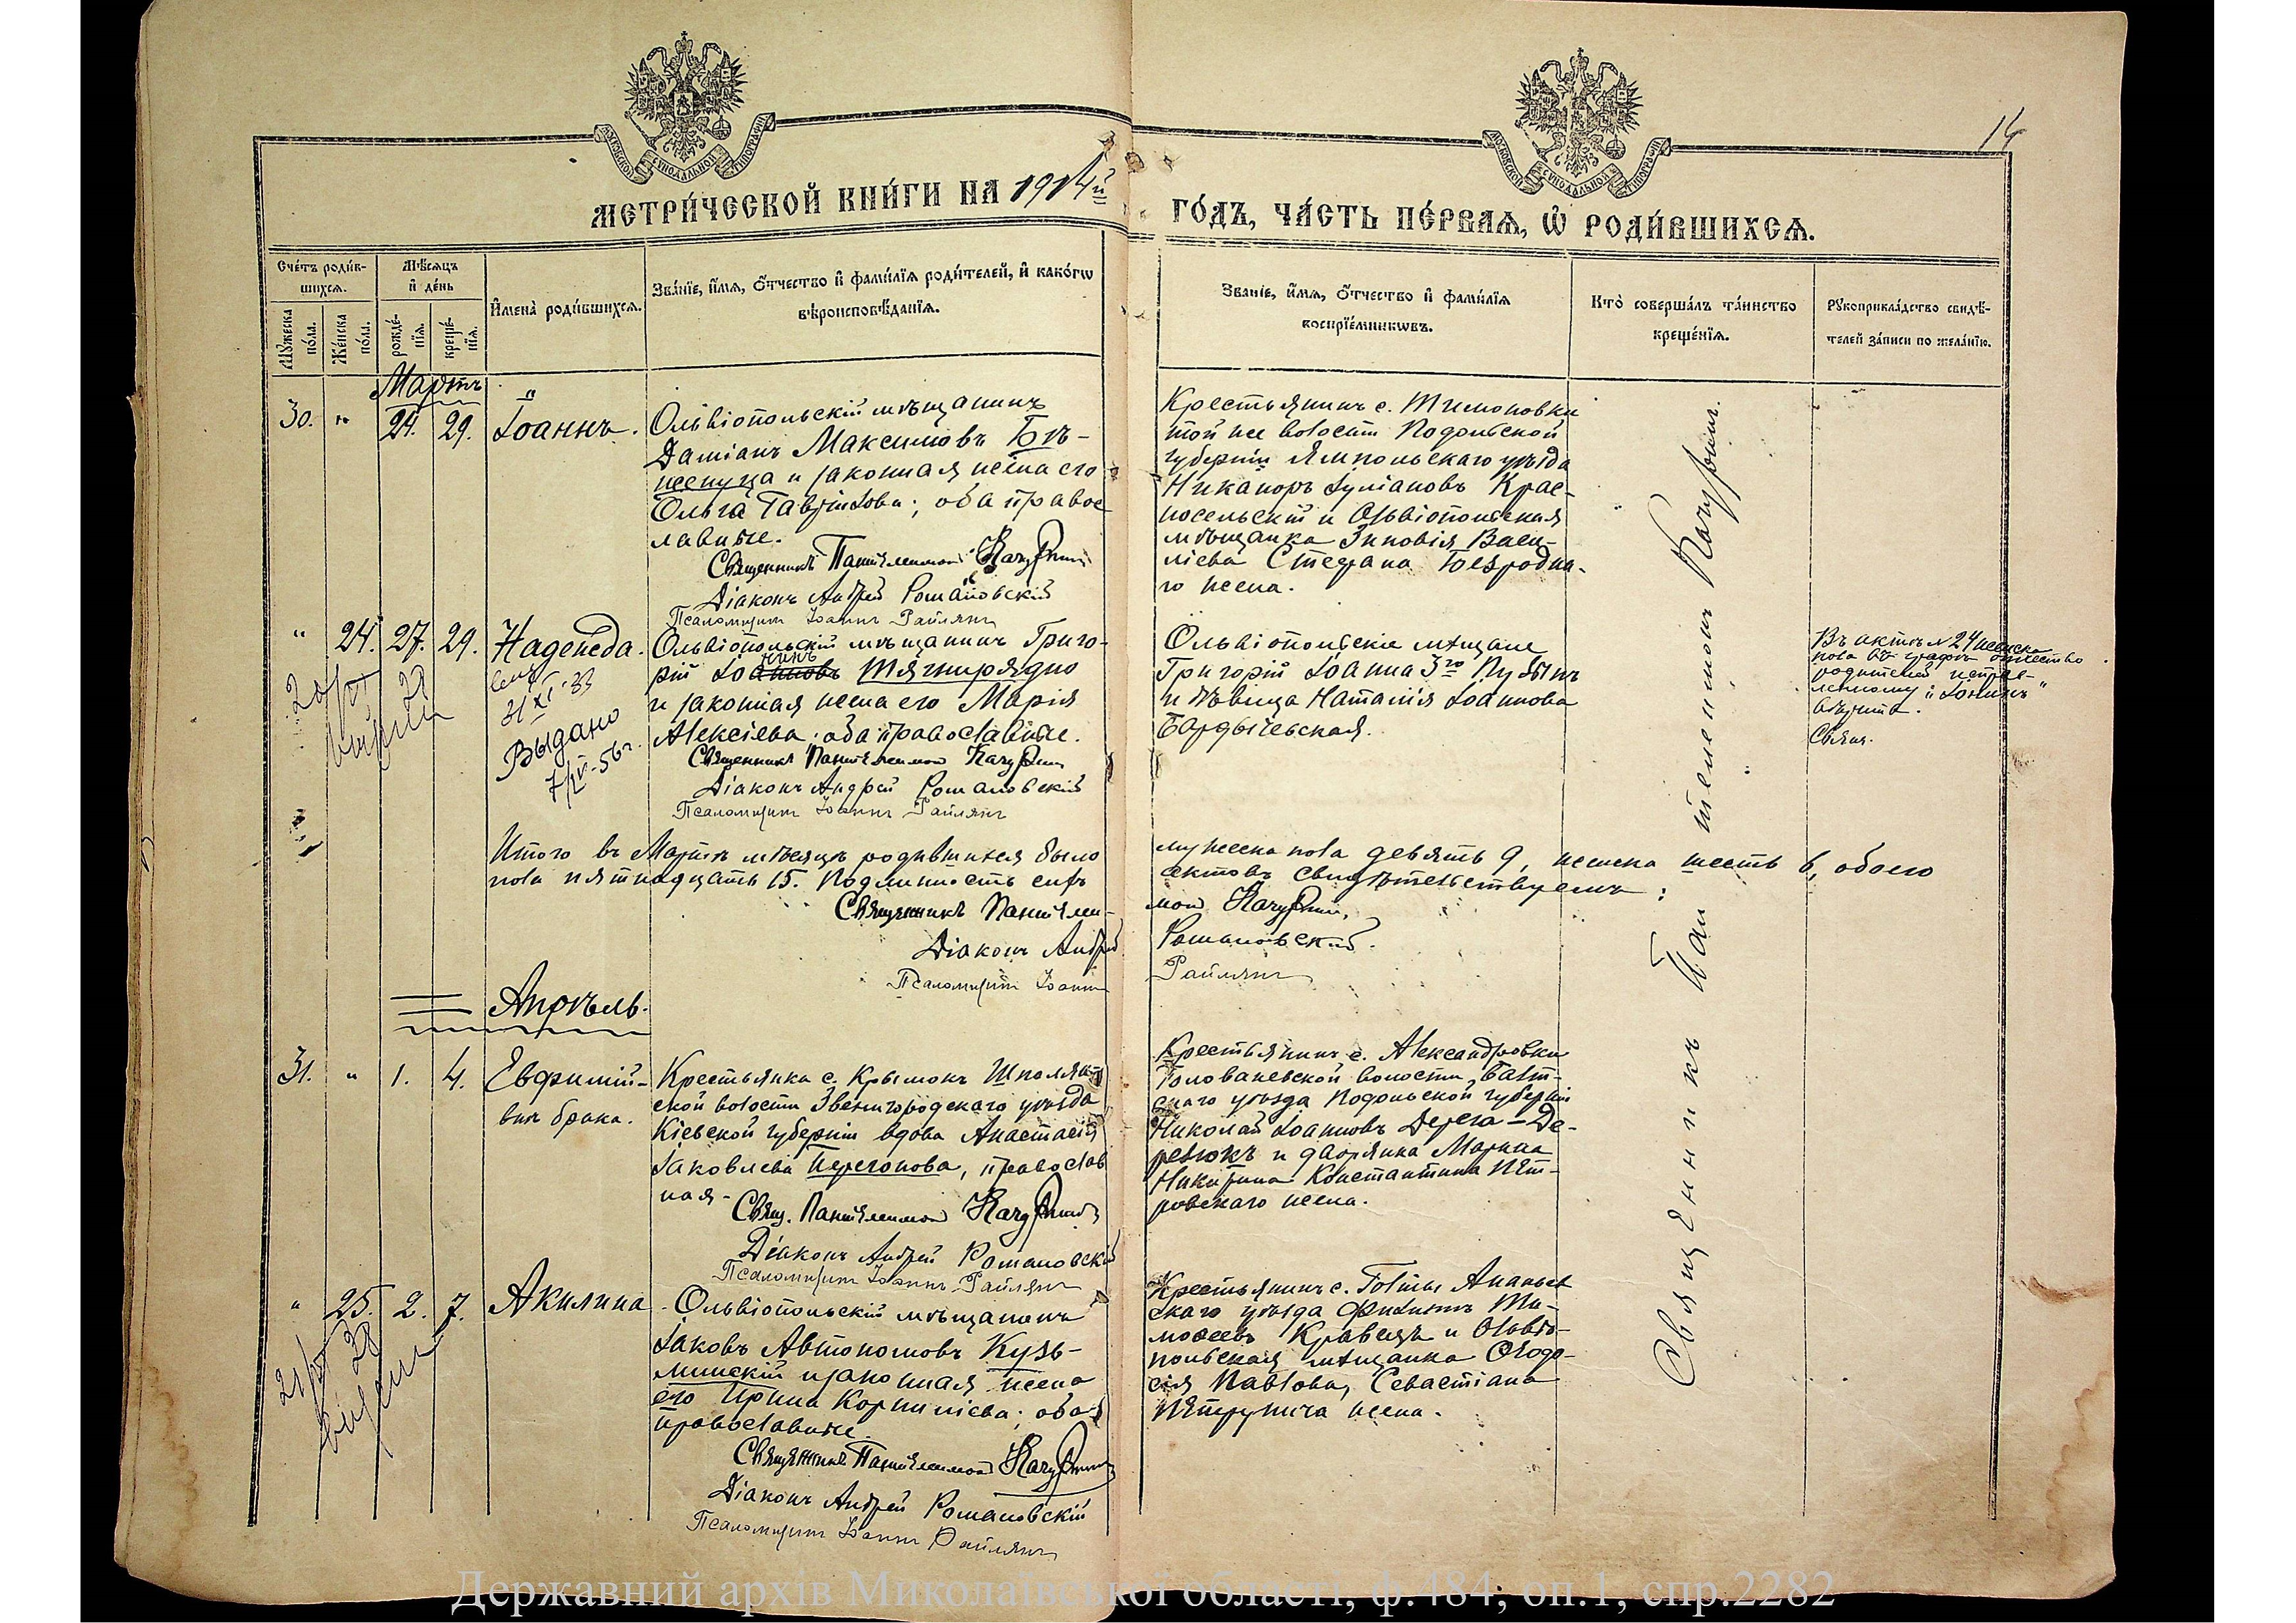 14
МОСКОВСКОЙ СѴНОДАЛЬНОЙ ТИПОГРАФІИ
МОСКОВСКОЙ СѴНОДАЛЬНОЙ ТИПОГРАФІИ
МЕТРИ́ЧЕСКОЙ КНИ́ГИ НА 1914й
ГО́ДЪ, ЧА́СТЬ ПЕ́РВАѦ, Ѡ҆ РОДИ́ВШИХСѦ.
Сче́тъ роди́в-
шихсѧ.
Мѣ́сѧцъ
и҆ де́нь
Мꙋ́жеска
по́ла.
Же́нска
по́ла.
рожде́-
нїѧ.
креще́-
нїѧ.
И҆мена̀ роди́вшихсѧ.
Зва́нїе, и҆́мѧ, ѻ҆́тчество и҆ фами́лїѧ роди́телей, и҆ како́гѡ
вѣроисповѣ́данїѧ.
Зва́нїе, и҆́мѧ, ѻ҆́тчество и҆ фами́лїѧ
воспрїе́мникѡвъ.
Кто̀ соверша́лъ та́инство
креще́нїѧ.
Рꙋкоприкла́дство свидѣ́-
телей за́писи по жела́нїю.
Мартъ
30. " 24. 29. Іоаннъ.
Ольвіопольскій мѣщанинъ
Даміанъ Максимовъ Бѣ-
жепуга и законная жена его
Ольга Гавріилова; оба правос
лавные.
Священникъ Пантелеимон
Діаконъ Андрей Романовскій
Псаломщикъ Іоаннъ Райлянъ
Крестьянинъ с. Тимоновки
той же волости Подольской
губерніи Ямпольскаго уѣзда
Никаноръ Іуліановъ Крас-
носельскій и Ольвіопольская
мѣщанка Зиновія Васи-
ліева Стефана Безродна-
го жена.
" 24. 27. 29. Надежда.
31/XI-33
Выдано
7/IV-56г.
Ольвіопольскій мѣщанинъ Григо-
рій Іоанновъ Тягнирядно
и законная жена его Марія
Алексіева; оба православные.
Священникъ Пантелеимон
Діаконъ Андрей Романовскій
Псаломщикъ Іоаннъ Райлянъ
Ольвіопольскіе мѣщане
Григорій Іоанна 3го
и дѣвица Наталія Іоаннова
Бардычевская.
Въ актѣ № 24 женска
пола въ графѣ отчество
родителей исправ-
ленному
вѣрить.
Свящ.
Итого въ Мартѣ мѣсяцѣ родившихся было
мужеска пола девять 9, женска шесть 6, обоего
пола пятнадцать 15. Подлинность сихъ
актовъ свидѣтельствуемъ:
Священникъ Пантелеи-
мон
Діаконъ Андрей
Романовский.
Псаломщикъ Іоаннъ
Райлянъ
Апрѣль.
31. " 1. 4. Евфимій-
внѣ брака.
Крестьянка с. Крымокъ Шполян-
ской волости Звенигородскаго уѣзда
Кіевской губерніи вдова Анастасія
Іаковлева Перегонова, православ
ная-
Свящ. Пантелеимон
Діаконъ Андрей Романовскій
Псаломщикъ Іоаннъ Райлянъ
Крестьянинъ с. Александровки
Голованевской волости, Балт-
скаго уѣзда Подольской губерніи
Николай Іоанновъ Дерега-Де-
ревюкъ и дворянка Марина
Константина Пет-
ровскаго жена.
" 25. 2. 7. Акилина
Ольвіопольскій мѣщанинъ
Іаковъ Автономовъ Кузь-
минскій и законная жена
его Ирина Корниліева; оба
православные.
Священникъ Пантелеимон
Діаконъ Андрей Романовскій
Псаломщикъ Іоаннъ Райлянъ
Крестьянинъ с. Голмы Ананьев
скаго уѣзда Филиппъ Ти-
мофеевъ Кравецъ и Ольвіо-
польская мѣщанка Ѳеодо-
сія Павлова, Севастіана
Петрунича жена.
Священникъ Пантелеимонъ
Державний архів Миколаївської області, ф.484, оп.1, спр.2282